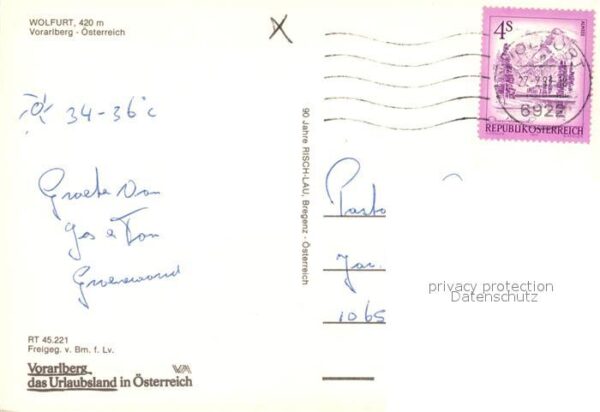 WOLFURT, 420 m
Vorarlberg - Österreich
4S
REPUBLIK ÖSTERREICH
WOLFURT
6922
34-36°C
Groeten van
Jos & Ton
Groenewoud
90 Jahre RISCH-LAU, Bregenz - Österreich
Pasto
Jan
1065
privacy protection
Datenschutz
RT 45.221
Freigeg. v. Bm. f. Lv.
Vorarlberg
das Urlaubsland in Österreich